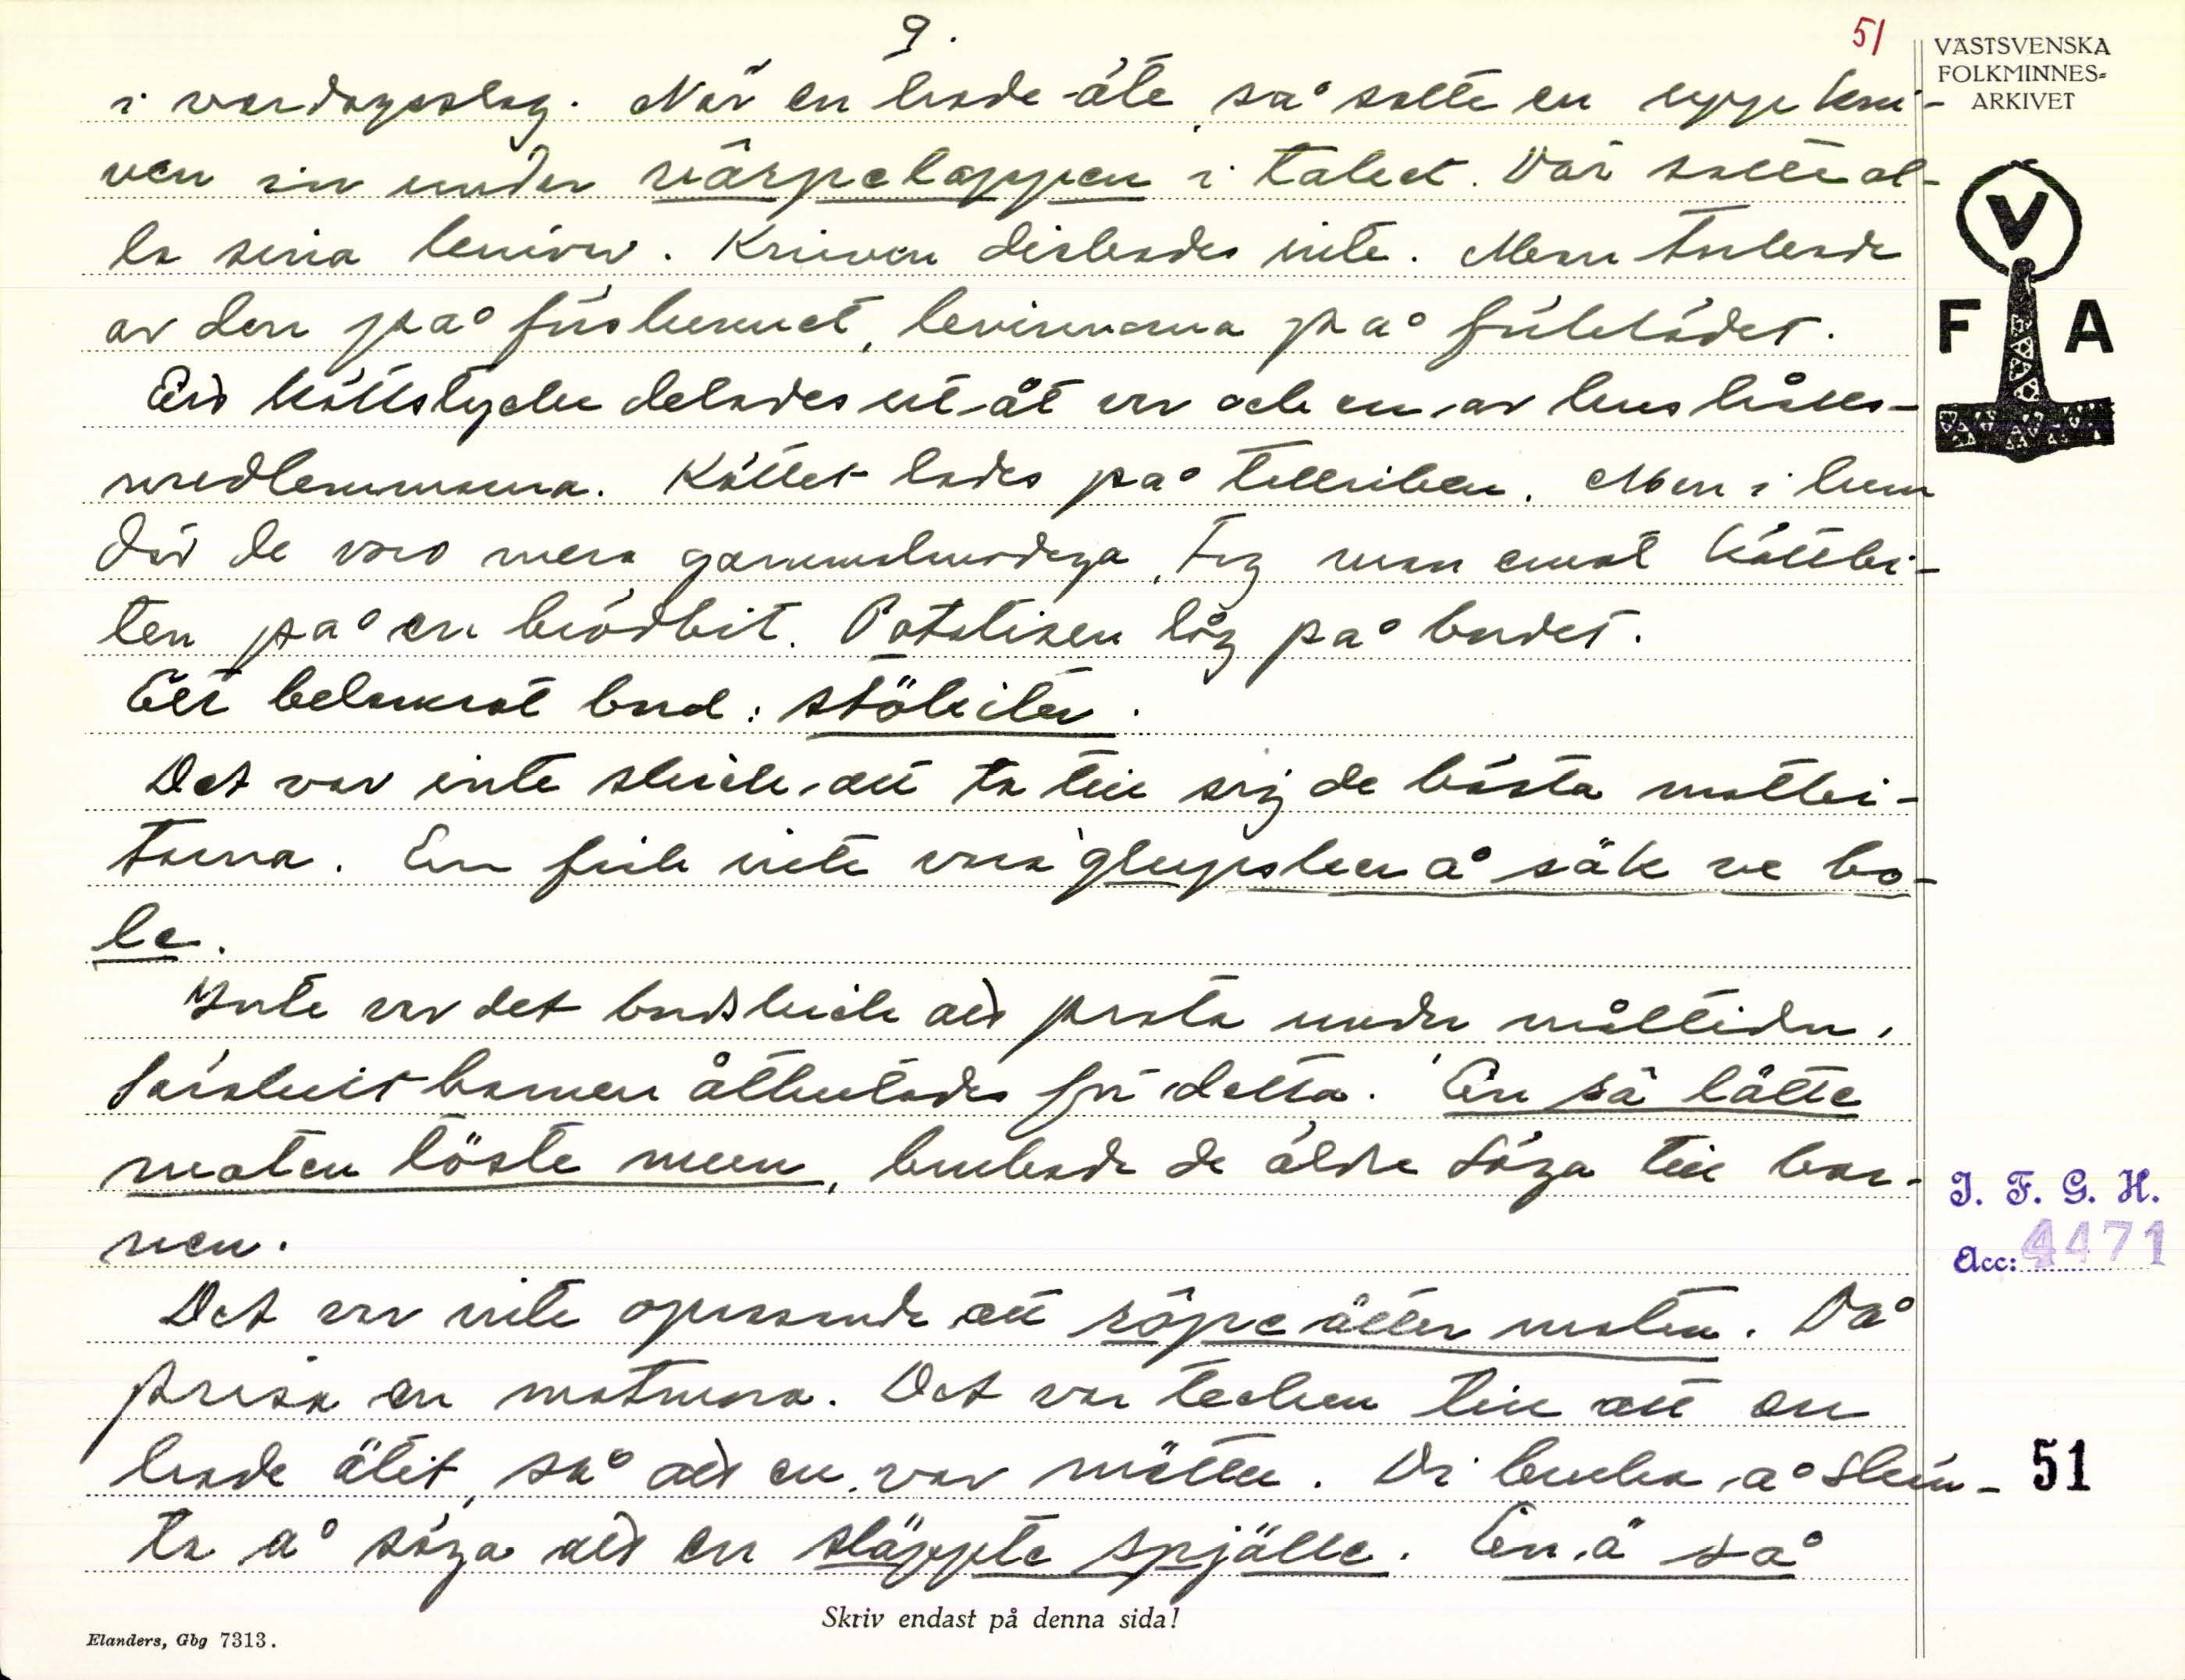 9.
51
VÄSTSVENSKA
FOLKMINNES-
ARKIVET
i vardagslag. När en hade ätè, så satte en upp kni-
ven sin under värpelappen i taket. Där satte al-
la sina knivar. Kniven diskades inte. Man torkade
av den på förkenet, kvinnorna på förklädet.
Ett köttstycke delades ut åt var och en av hushålls-
medlemmarna. Köttet lades på tallriken. Men i hem
där de voro mera gammalmodiga, tog man emot köttbi-
ten på en brödbit. Potatisen låg på bordet.
Ett belamrat bord: stökiter.
Det var inte skick att ta till sig de bästa matbi-
tarna. En fick inte vara glupsker å säk ve bo-
le.
Inte var det bordskick att prata under måltiden,
Särskilt barnen åthutades för detta. En sä lätte
maten töste mun, brukade de äldre säga till bar-
nen.
Det var inte opassande att räpe ätter maten. Då
prisa en matmora. Det var tecken till att en
hade ätit, så att en var mätter. Di bruka å skäm-
ta å säga att en släppte spjälle. En ä så
V
F A
I. F. G. H.
Acc: 4471
51
Skriv endast på denna sida!
Elanders, Gbg 7313.